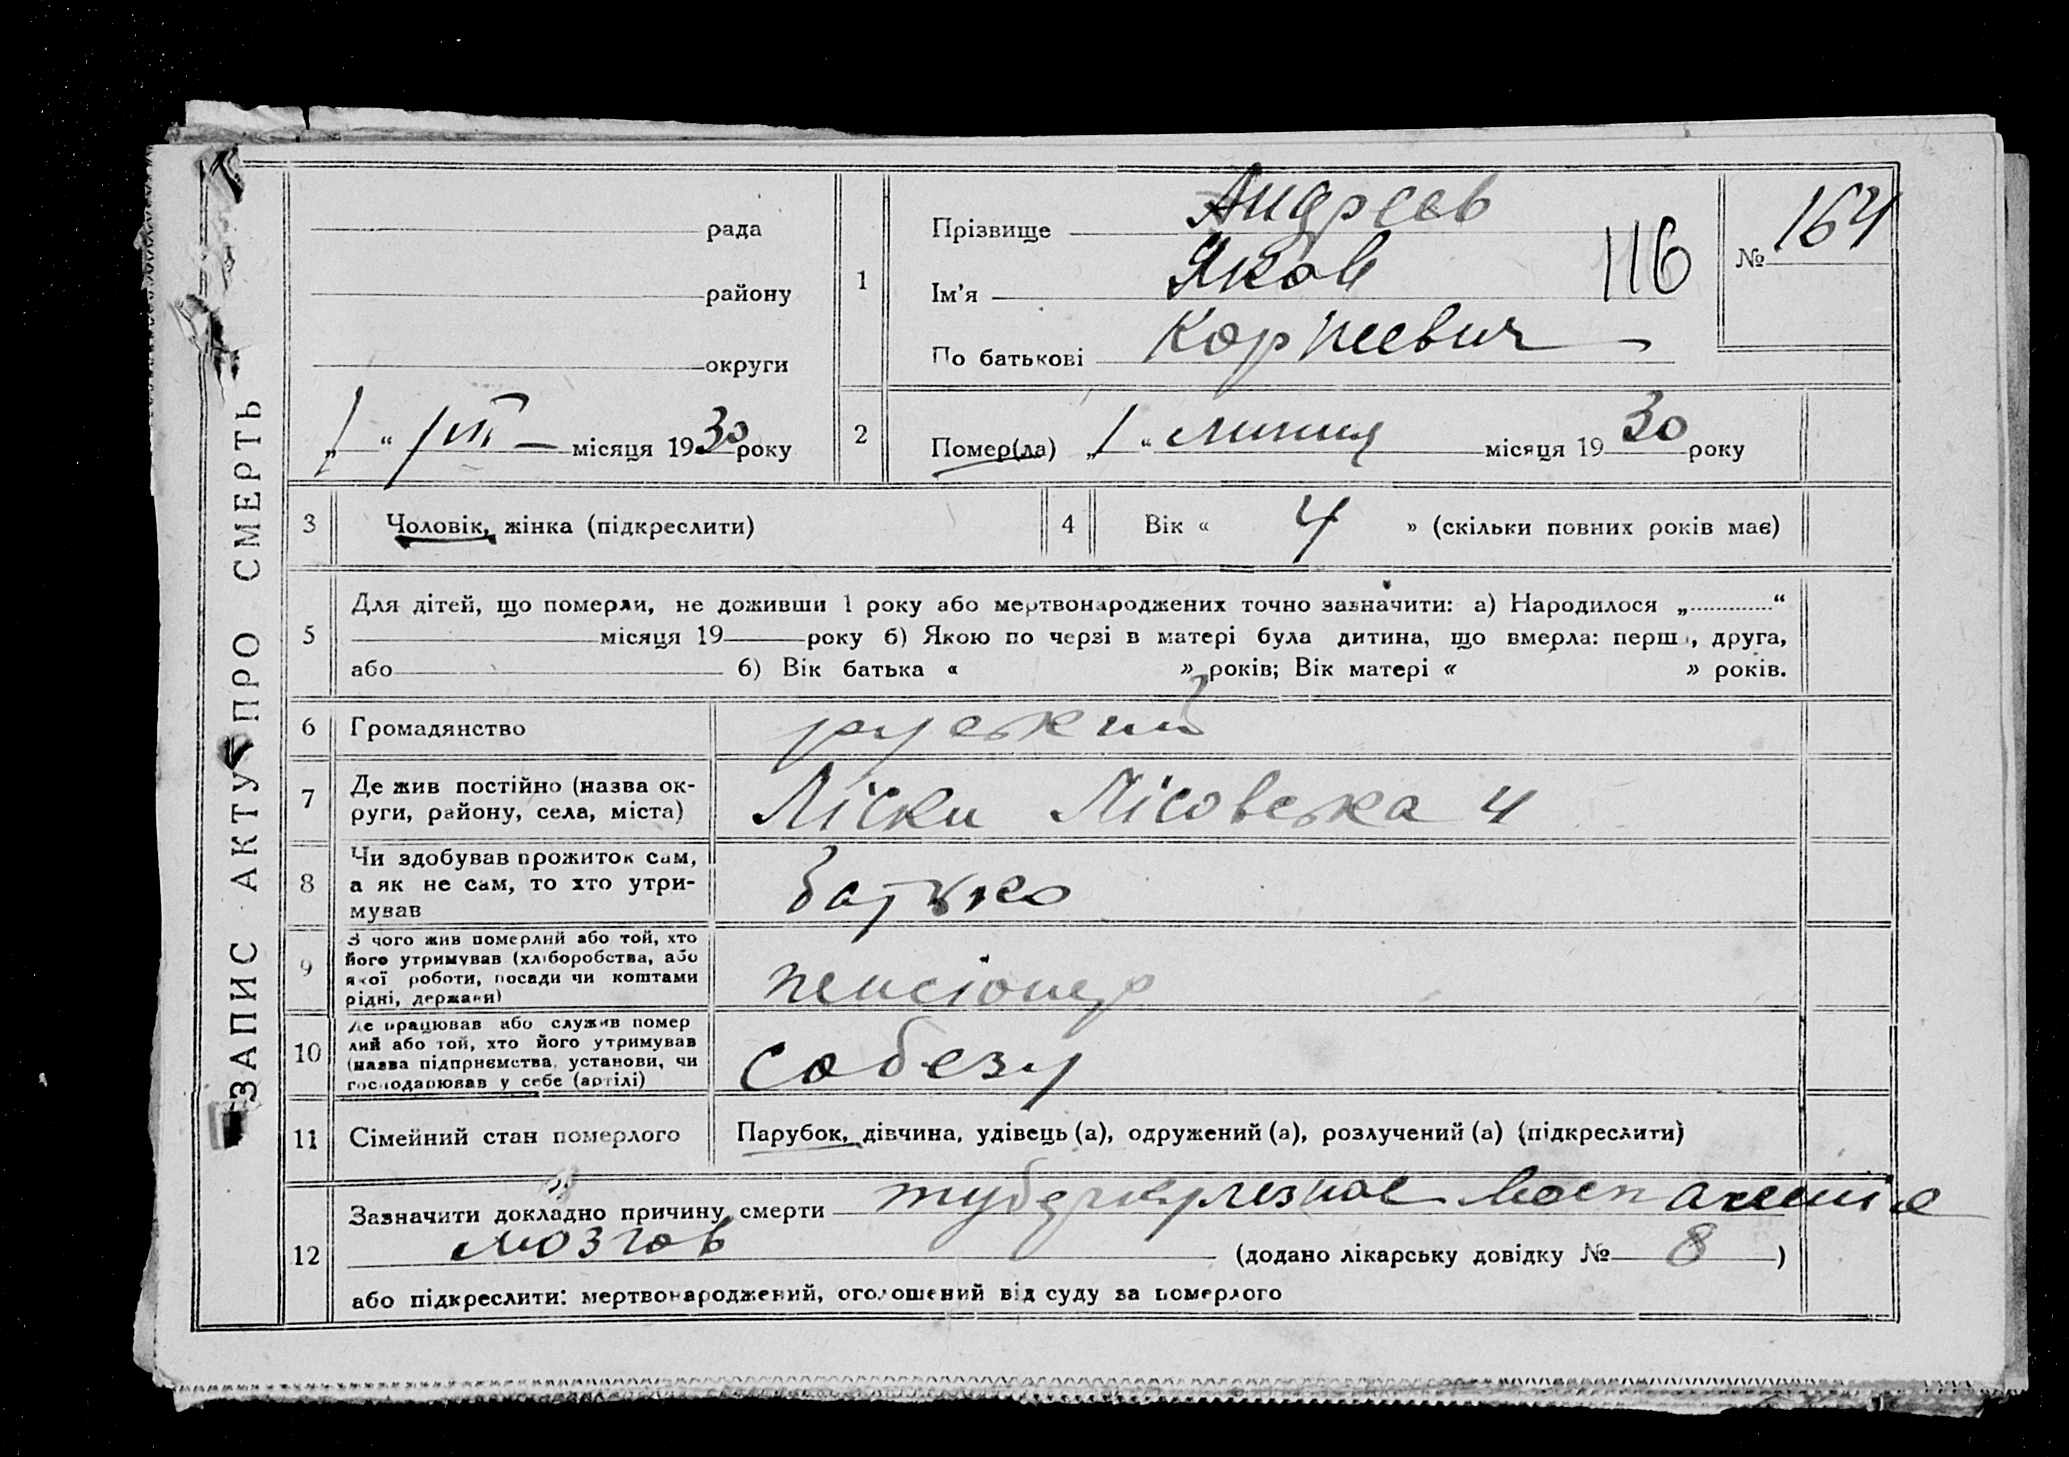 ЗАПИС АКТУ ПРО СМЕРТЬ
рада
району
округи
„ 1 “ /VII — місяця 1930 року
1
Прізвище Андреев
Ім'я Яков
По батькові Корнеевич
116
№ 164
2
Помер(ла) „ 1 “ липня місяця 1930 року
3 Чоловік, жінка (підкреслити)
4 Вік « 4 » (скільки повних років має)
5
Для дітей, що померли, не доживши 1 року або мертвонароджених точно зазначити: а) Народилося „ “
місяця 19 року б) Якою по черзі в матері була дитина, що вмерла: перша, друга,
або б) Вік батька « » років; Вік матері « » років.
6 Громадянство руський
7 Де жив постійно (назва ок-
руги, району, села, міста)
Ліски Лісовська 4
8 Чи здобував прожиток сам,
а як не сам, то хто утри-
мував
батько
9 З чого жив померлий або той, хто
його утримував (хліборобства, або
якої роботи, посади чи коштами
рідні, держави)
пенсіонер
10 Де працював або служив помер
лий або той, хто його утримував
(назва підприємства, установи, чи
господарював у себе (артілі)
собезу
11 Сімейний стан померлого Парубок, дівчина, удівець (а), одружений (а), розлучений (а) (підкреслити)
12
Зазначити докладно причину смерти туберкулезное воспаление
мозгов (додано лікарську довідку № 8 )
або підкреслити: мертвонароджений, оголошений від суду за померлого